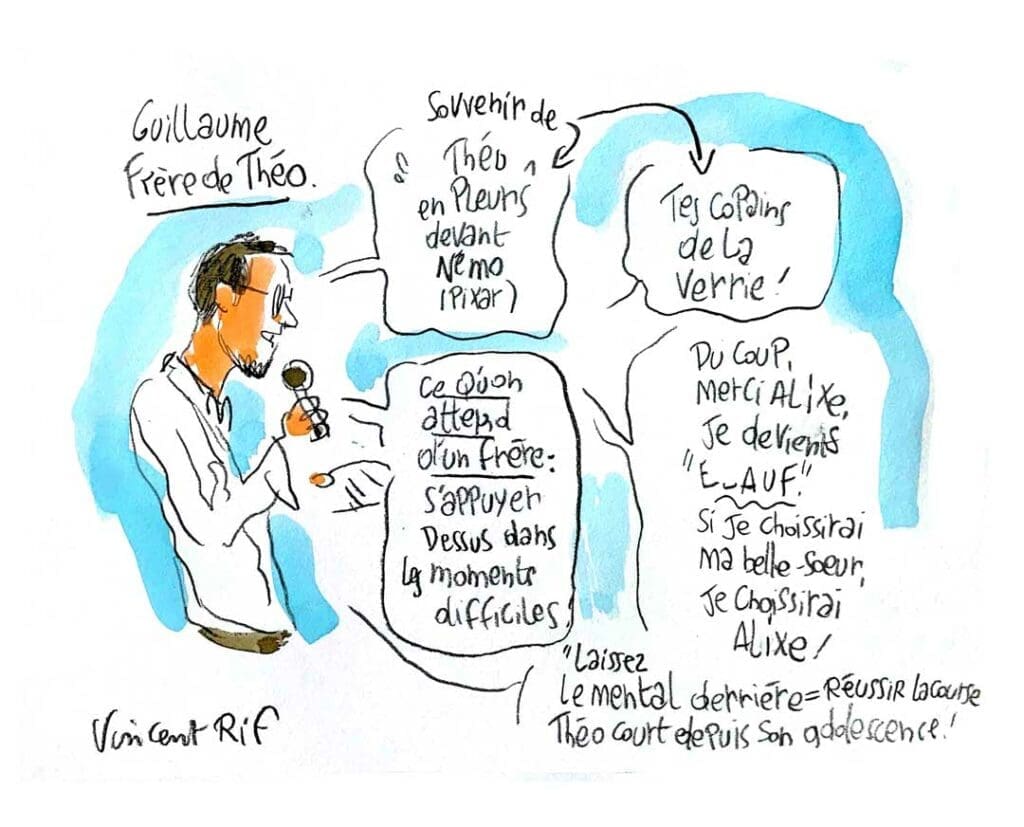 Guillaume
Frère de Théo.
Souvenir de
Théo
en Pleurs
devant
Némo
(Pixar)
Tes coPains
de la
Verrie !
Ce qu'on
attend
d'un frère :
S'appuyer
Dessus dans
les moments
difficiles !
DU COUP,
MERCI ALIXe,
Je deviens
"E_AUF."
Si Je choissirai
ma belle-soeur,
Je choissirai
ALiXe !
"Laissez
Le mental derrière = RÉUSSIR la course
Théo court depuis son addolescence !
Vincent Rif